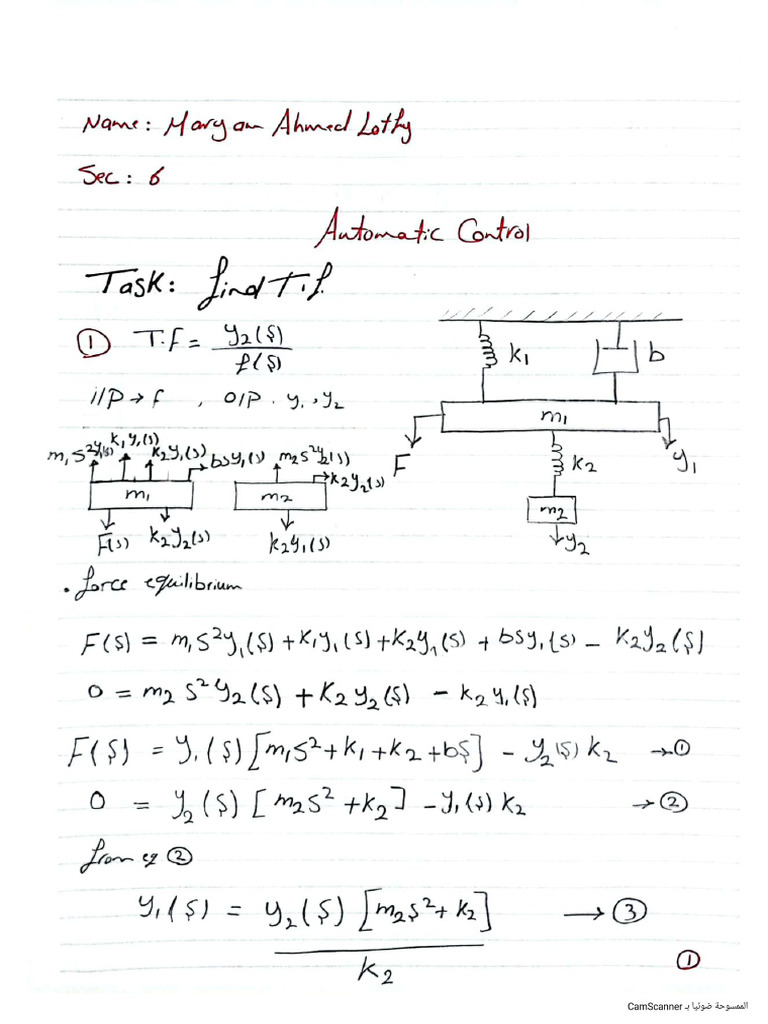 Name: Maryam Ahmed Lotfy
Sec: 6
Automatic Control
Task: find T.f.
① T.f = y₂(s) / f(s)
i/P → f , O/P . y₁ , y₂
k₁
b
m₁
F
y₁
k₂
m₂
y₂
m₁s²y₁(s) k₁y₁(s) k₂y₁(s) bsy₁(s)
m₁
F(s) k₂y₂(s)
m₂s²y₂(s) k₂y₂(s)
m₂
k₂y₁(s)
. force equilibrium
F(s) = m₁s²y₁(s) + k₁y₁(s) + k₂y₁(s) + bsy₁(s) - k₂y₂(s)
0 = m₂ s² y₂(s) + k₂ y₂(s) - k₂ y₁(s)
F(s) = y₁(s) [m₁s² + k₁ + k₂ + bs] - y₂(s) k₂ → ①
0 = y₂(s) [m₂s² + k₂] - y₁(s) k₂ → ②
from eq ②
y₁(s) = y₂(s) [m₂s² + k₂] / k₂ → ③
①
الممسوحة ضوئيا بـ CamScanner